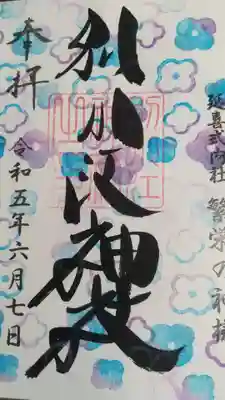 延喜式内社 繁栄の神様
別小江神社
奉拝
令和五年六月七日